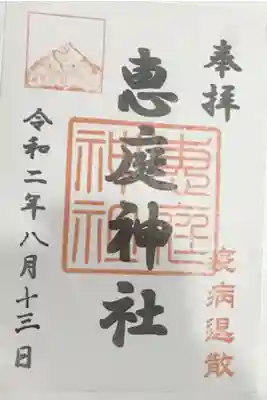 奉拝
疫病退散
恵庭神社
恵庭神社
令和二年八月十三日